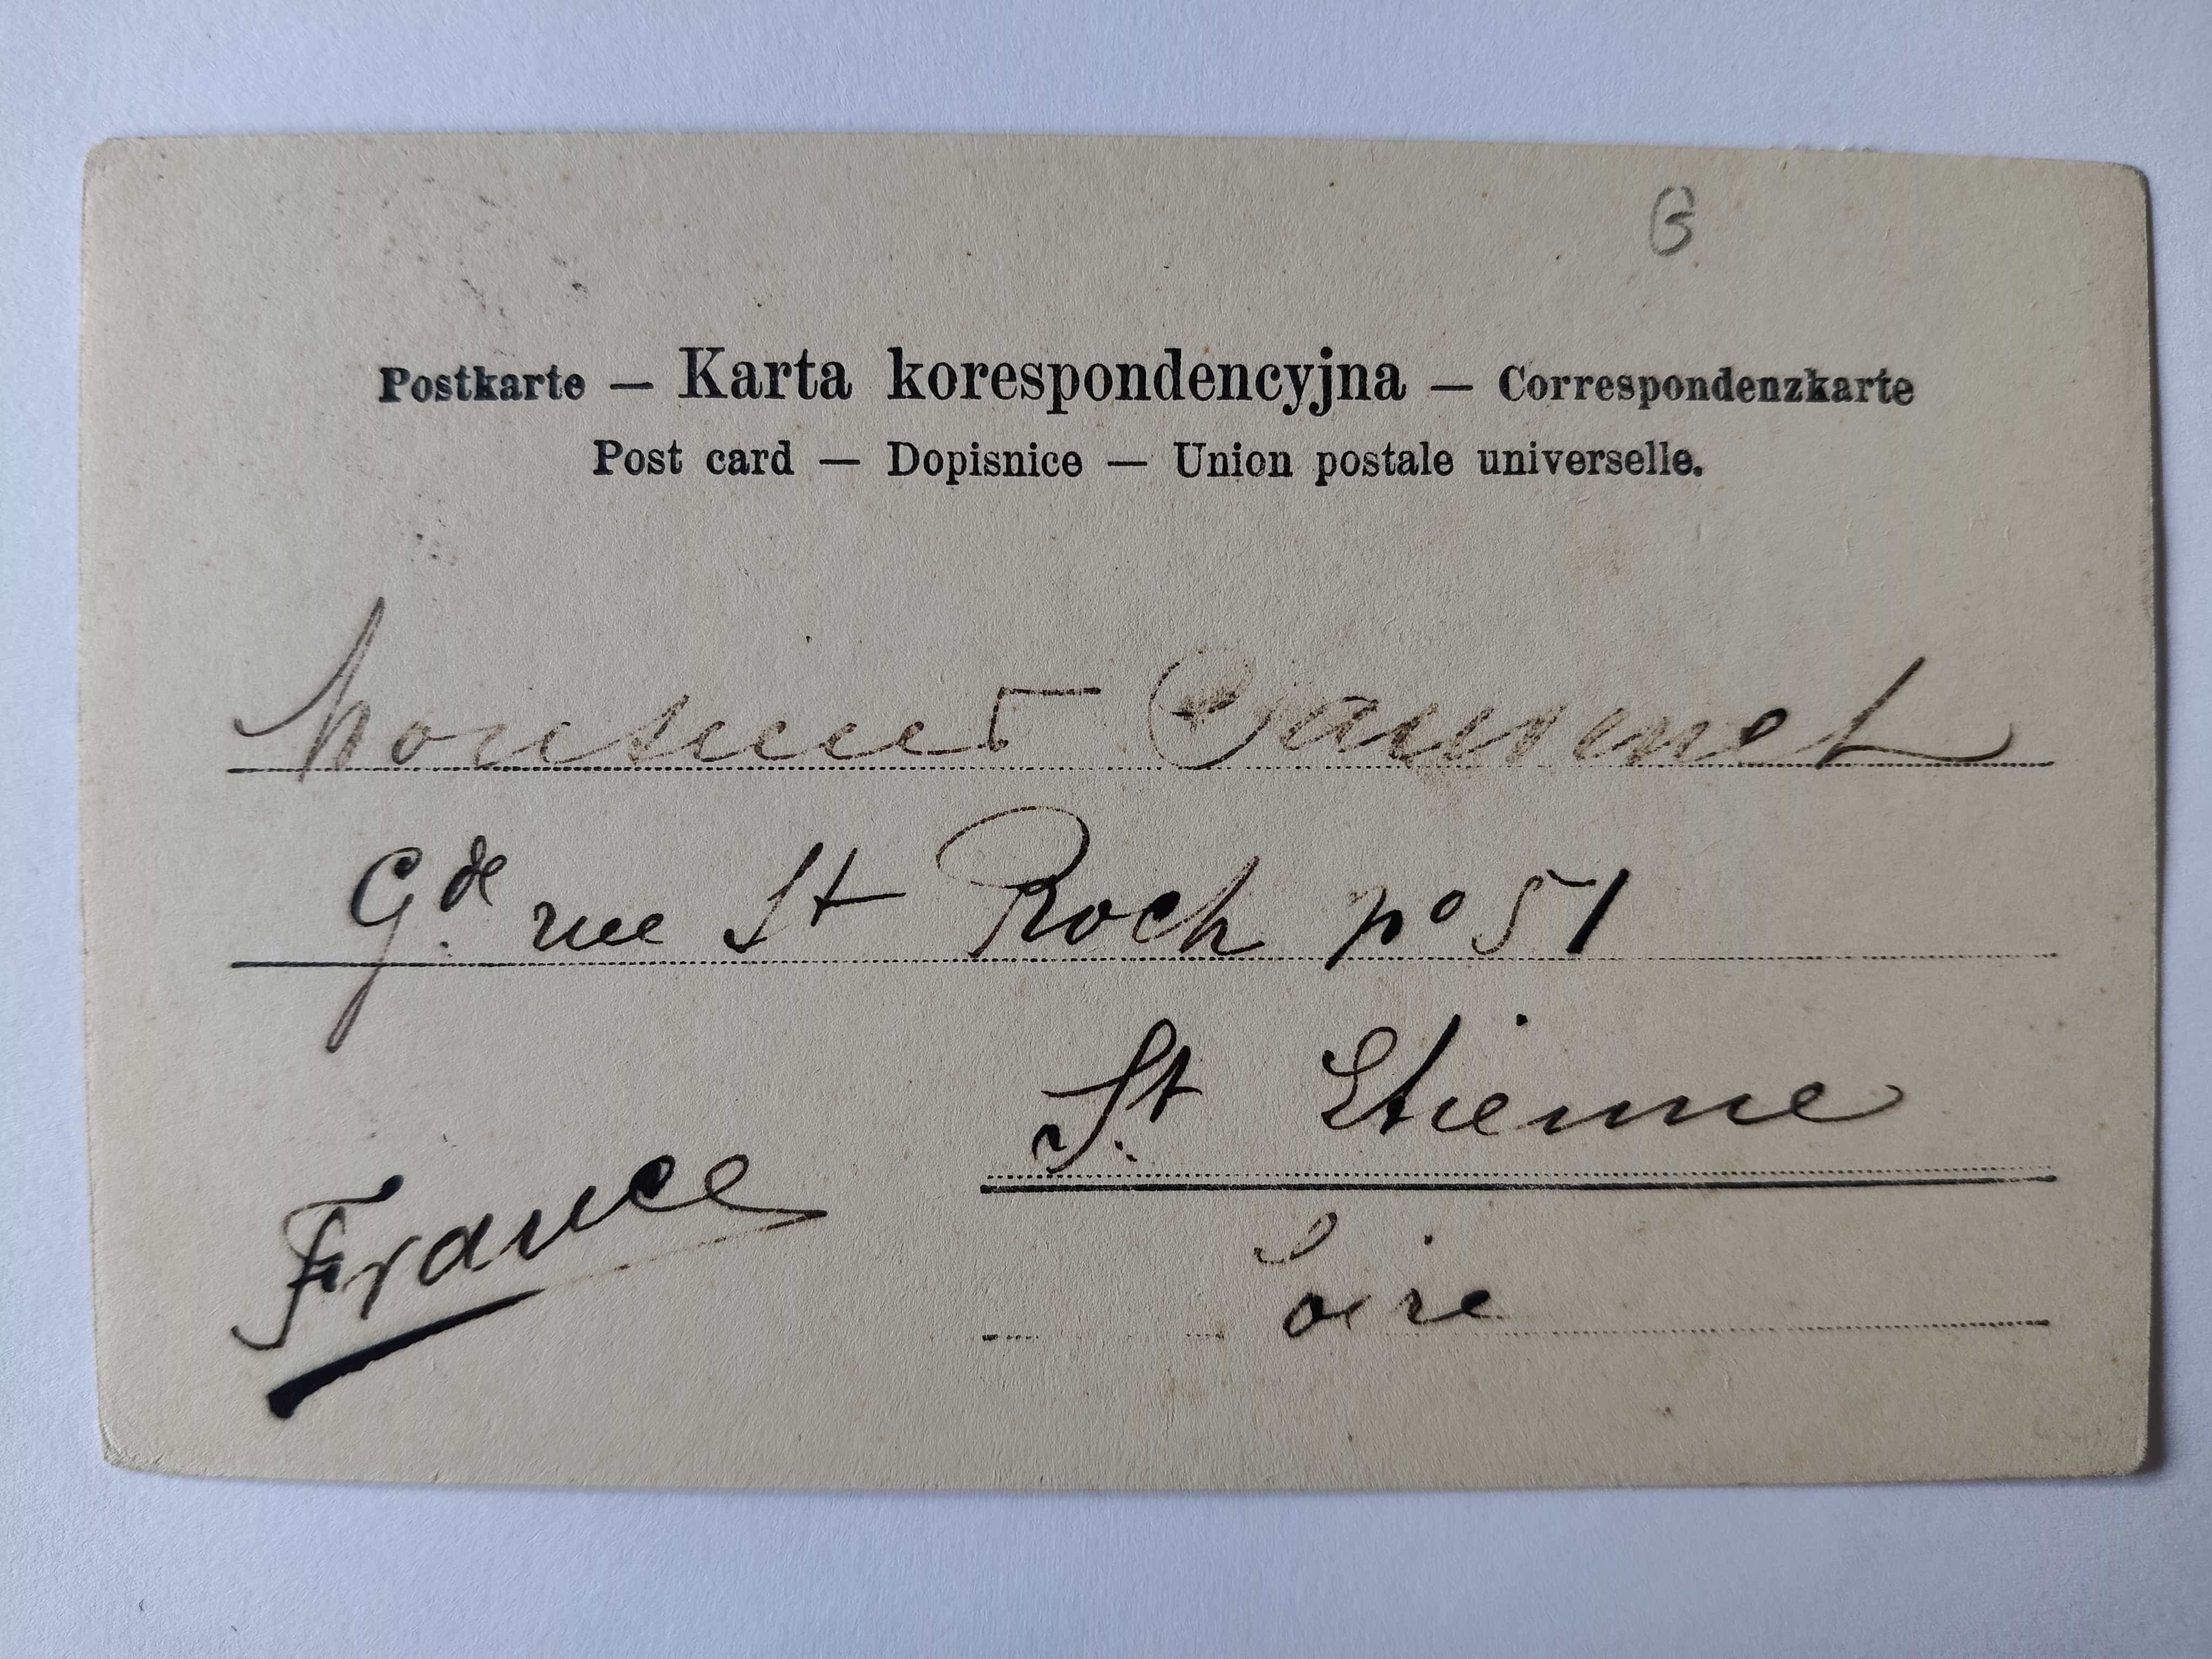 B
Postkarte — Karta korespondencyjna — Correspondenzkarte
Post card — Dopisnice — Union postale universelle.
Monsieur
Gde rue St Roch no 51
St Etienne
Loire
France